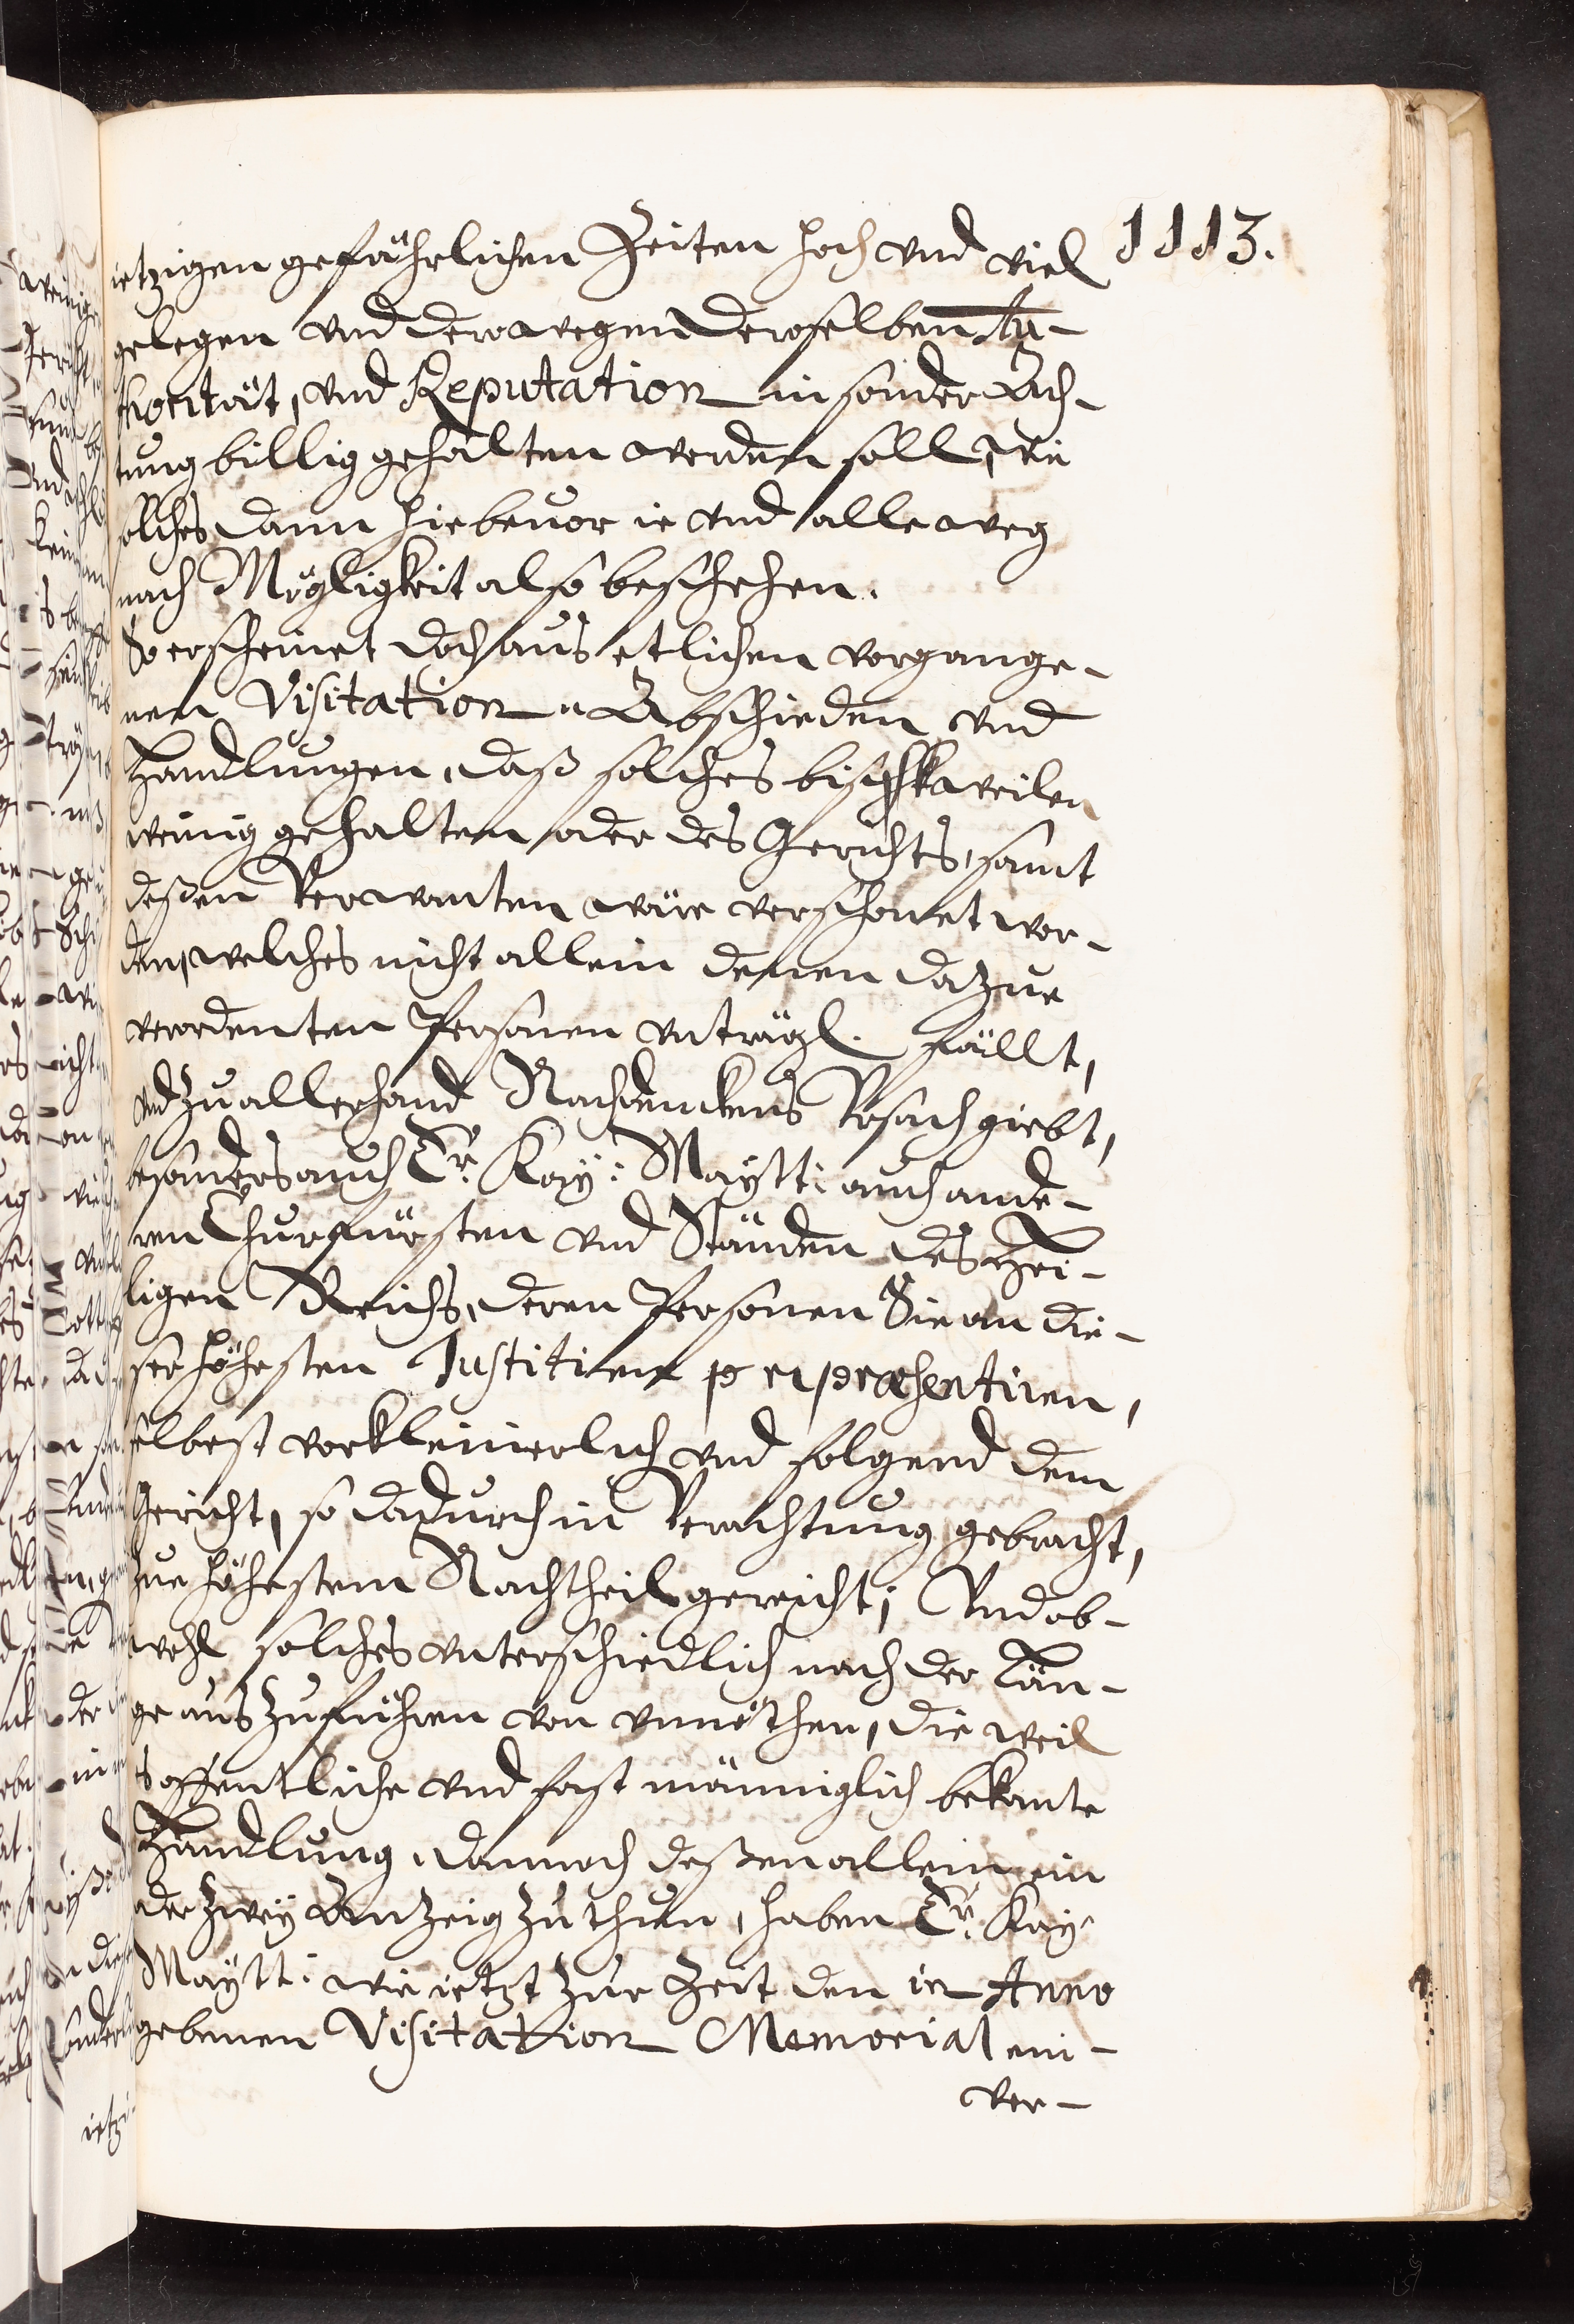 1113.
ietzigen gefährlichen Zeiten hoch vnd viel
gelegen vnd derowegen deroselben Au-
thorität, vnd Reputation in sonder Ach-
tung billig gehalten werden soll, wie
solches dann hiebeuor ie vnd alleweg
nach Mögligkeit also beschehen.
So erscheinet doch aus etlichen vorgange-
nen Visitation Abschieden vnd
Handlungen, daß solches bißweilen
wenig gehalten oder des Gerichts, samt
deßen Verwanten wäre verschonet wor-
den, welches nicht allein denen dazue
verordenten Personen vnträgl. fällt,
vnd zu allerhand Nachdenckens Vrsach giebt,
besonders auch Er. Kay: Maytt: auch ande-
ren Churfürsten vnd Ständen des Hei-
ligen Reichs, deren Personen Sie an die-
ser höhesten Justitien repræsentiren,
selbest verkleinerlich vnd folgend dem
Gericht, so dadurch in Verachtung gebracht,
zue höhestem Nachtheil gereicht; Vnd ob-
wohl solches vnterschiedlich nach der Län-
ge auszuführen von vnnöthen, die weil
es offentliche vnd fast männiglich bekante
Handlung, dannoch deßen allein ein
oder zwey Anzeig zu thun, haben Er. Kay:
Maytt: wie ietzt zur Zeit den in Anno
gebenen Visitation Memorial ein-
ver-
ietzi-